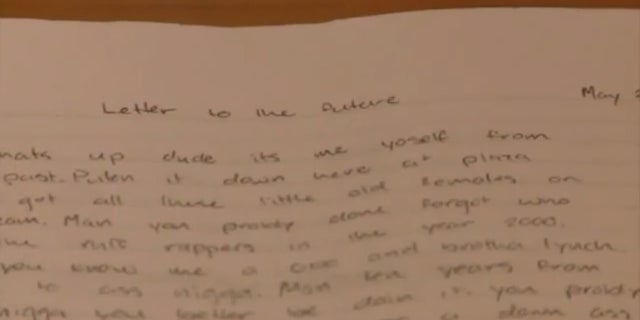 Letter to the Future
May
hats up dude its me yoself from
past. Puten it down here at plaza
got all these little old females on
eam. Man you probly done forgot who
the rappers in the year 2000.
you know me a and brotha lynch
to ass nigga. Man ten years from
nigga you better be doin it. you probly
a down ass